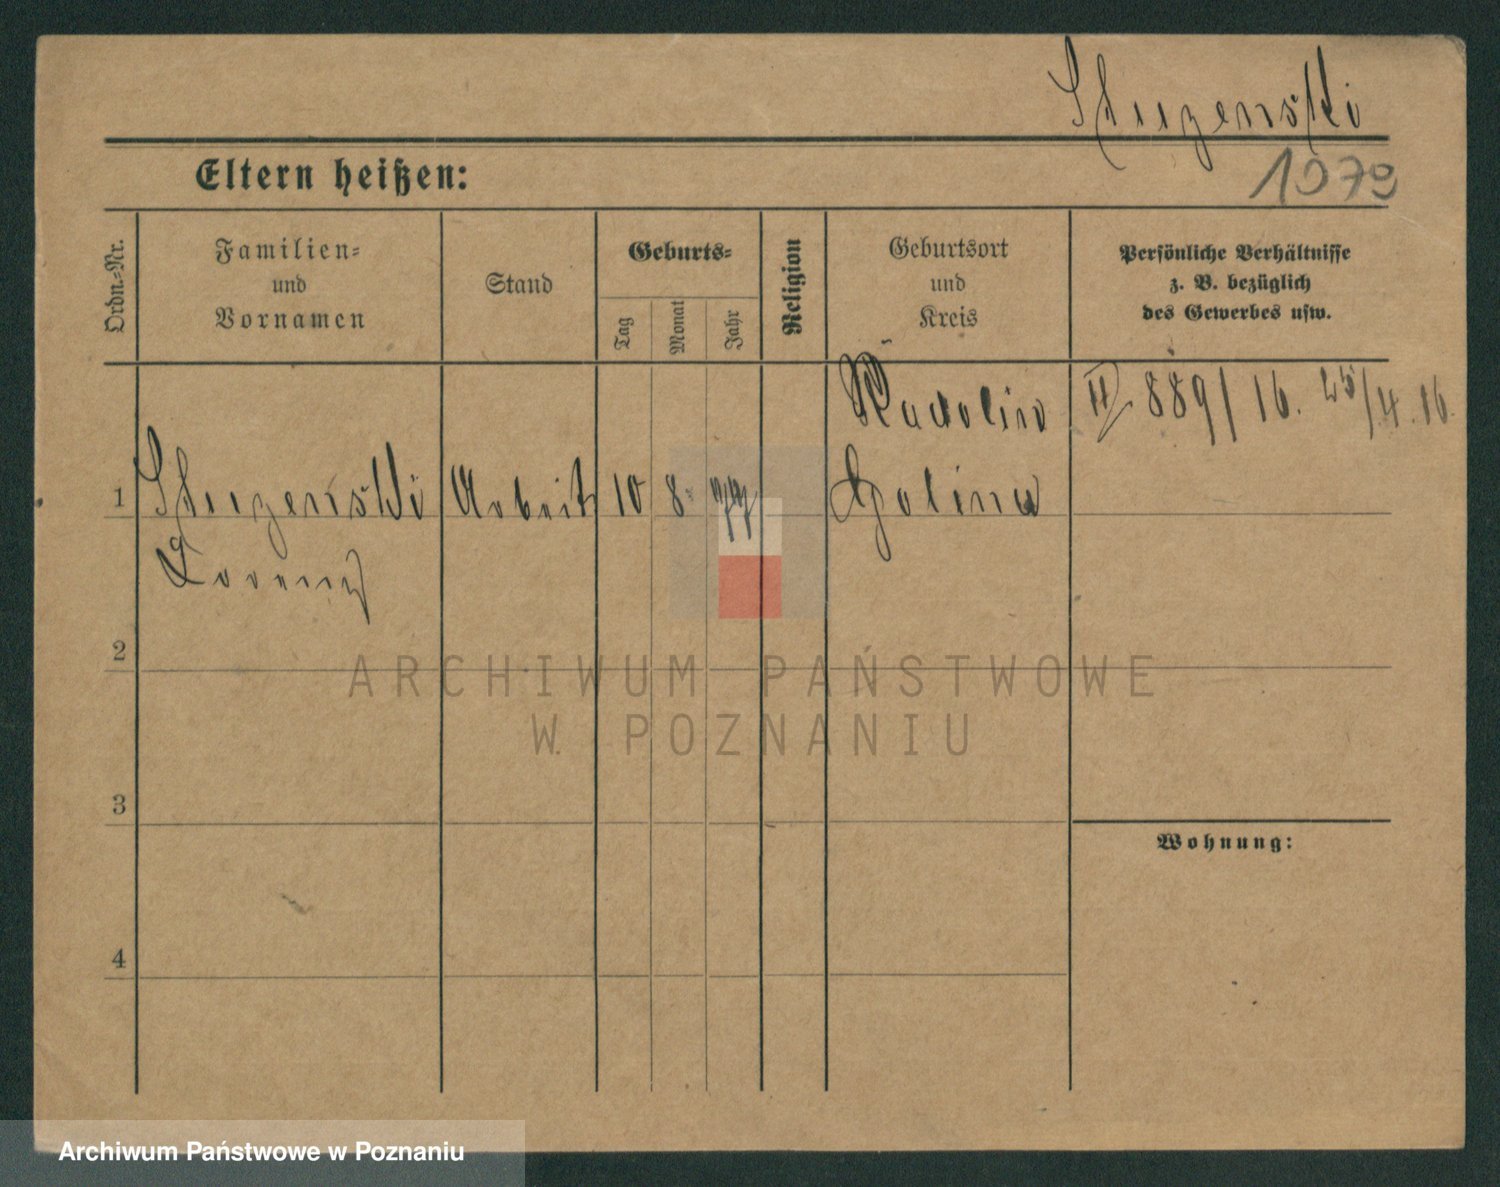 Eltern heißen:
1979
Ordn.-Nr.
Familien-
und
Vornamen
Stand
Geburts-
Tag
Monat
Jahr
Religion
Geburtsort
und
Kreis
Persönliche Verhältnisse
z. B. bezüglich
des Gewerbes usw.
Radolin
II 889/16. 25/4.16.
1
Arbeit
10
8.
77
Golina
Lorenz
2
ARCHIWUM PAŃSTWOWE
W POZNANIU
3
Wohnung:
4
Archiwum Państwowe w Poznaniu